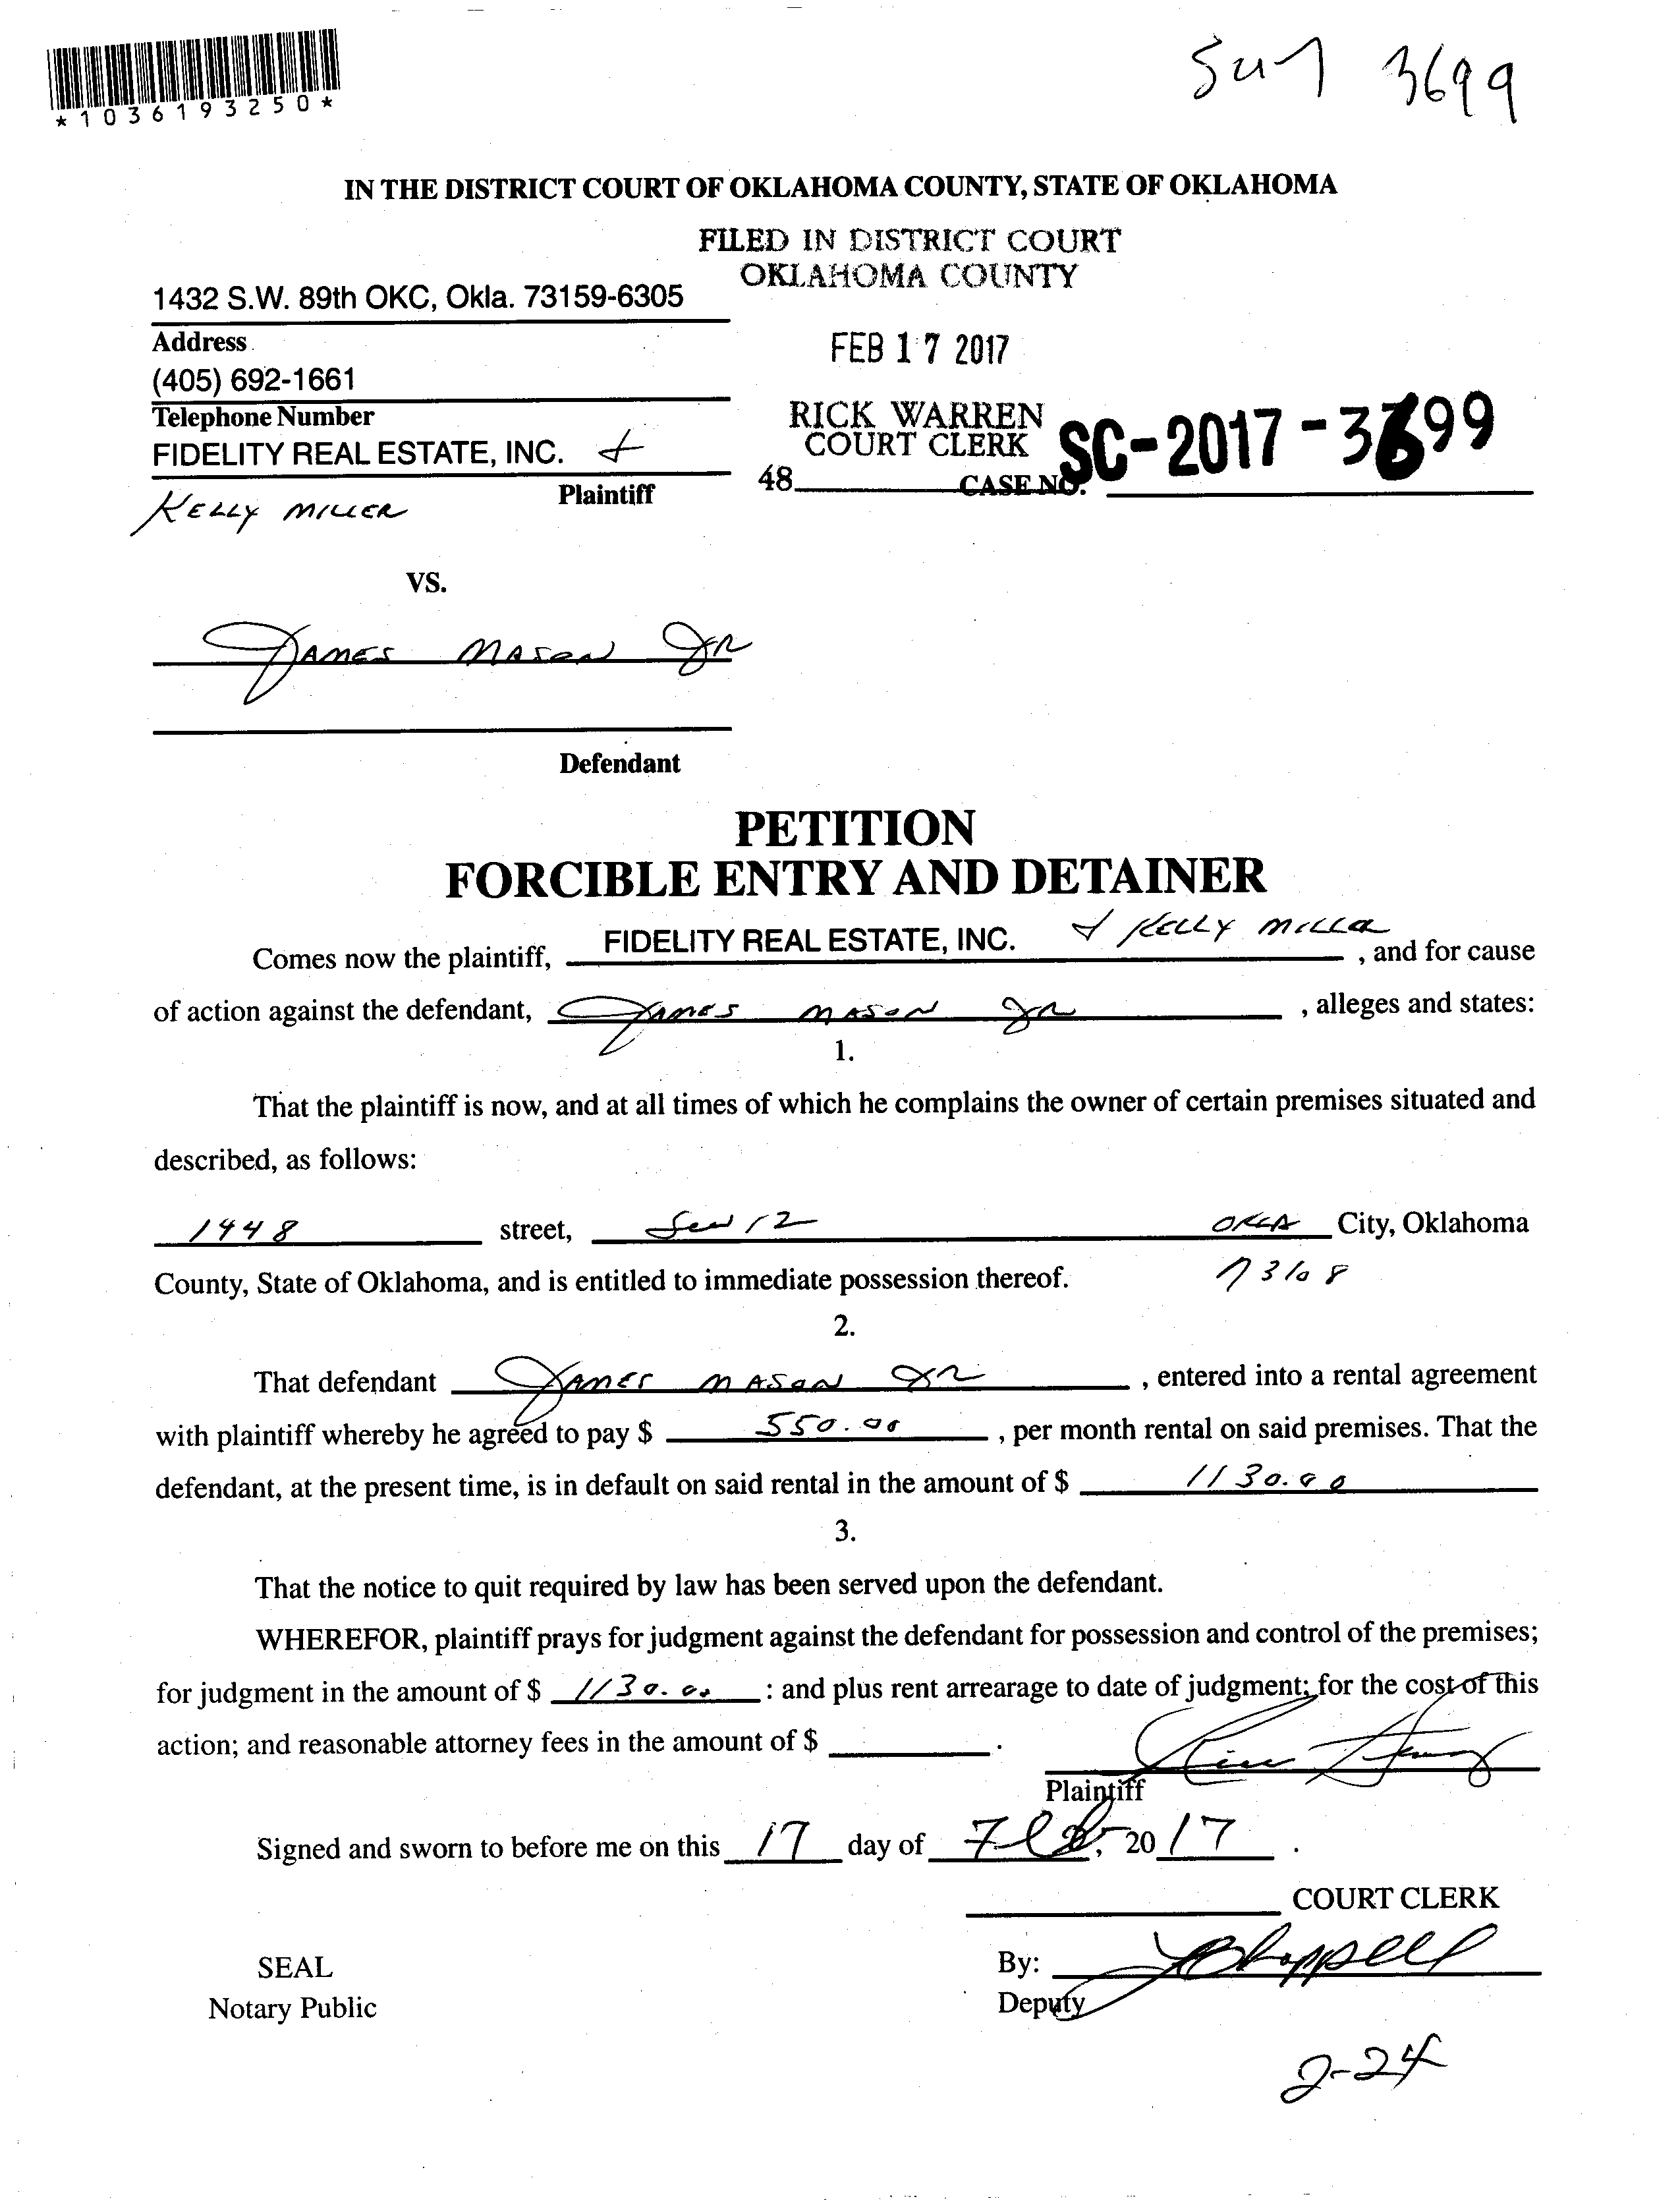 *1036193250*
3699
IN THE DISTRICT COURT OF OKLAHOMA COUNTY, STATE OF OKLAHOMA
FILED IN DISTRICT COURT
OKLAHOMA COUNTY
1432 S.W. 89th OKC, Okla. 73159-6305
Address
FEB 17 2017
(405) 692-1661
Telephone Number
RICK WARREN
COURT CLERK
FIDELITY REAL ESTATE, INC. +
48 CASE NO. SC-2017-3699
Plaintiff
KELLY MILLER
VS.
JAMES MASON JR
Defendant
PETITION
FORCIBLE ENTRY AND DETAINER
Comes now the plaintiff, FIDELITY REAL ESTATE, INC. + KELLY MILLER , and for cause
of action against the defendant, JAMES MASON JR , alleges and states:
1.
That the plaintiff is now, and at all times of which he complains the owner of certain premises situated and
described, as follows:
1448 street, SW 12 OKLA City, Oklahoma
County, State of Oklahoma, and is entitled to immediate possession thereof. 73108
2.
That defendant JAMES MASON JR , entered into a rental agreement
with plaintiff whereby he agreed to pay $ 550.00 , per month rental on said premises. That the
defendant, at the present time, is in default on said rental in the amount of $ 1130.00
3.
That the notice to quit required by law has been served upon the defendant.
WHEREFOR, plaintiff prays for judgment against the defendant for possession and control of the premises;
for judgment in the amount of $ 1130.00 : and plus rent arrearage to date of judgment; for the cost of this
action; and reasonable attorney fees in the amount of $ .
Plaintiff
Signed and sworn to before me on this 17 day of Feb, 2017 .
COURT CLERK
SEAL
By: Chappell
Notary Public
Deputy
2-24